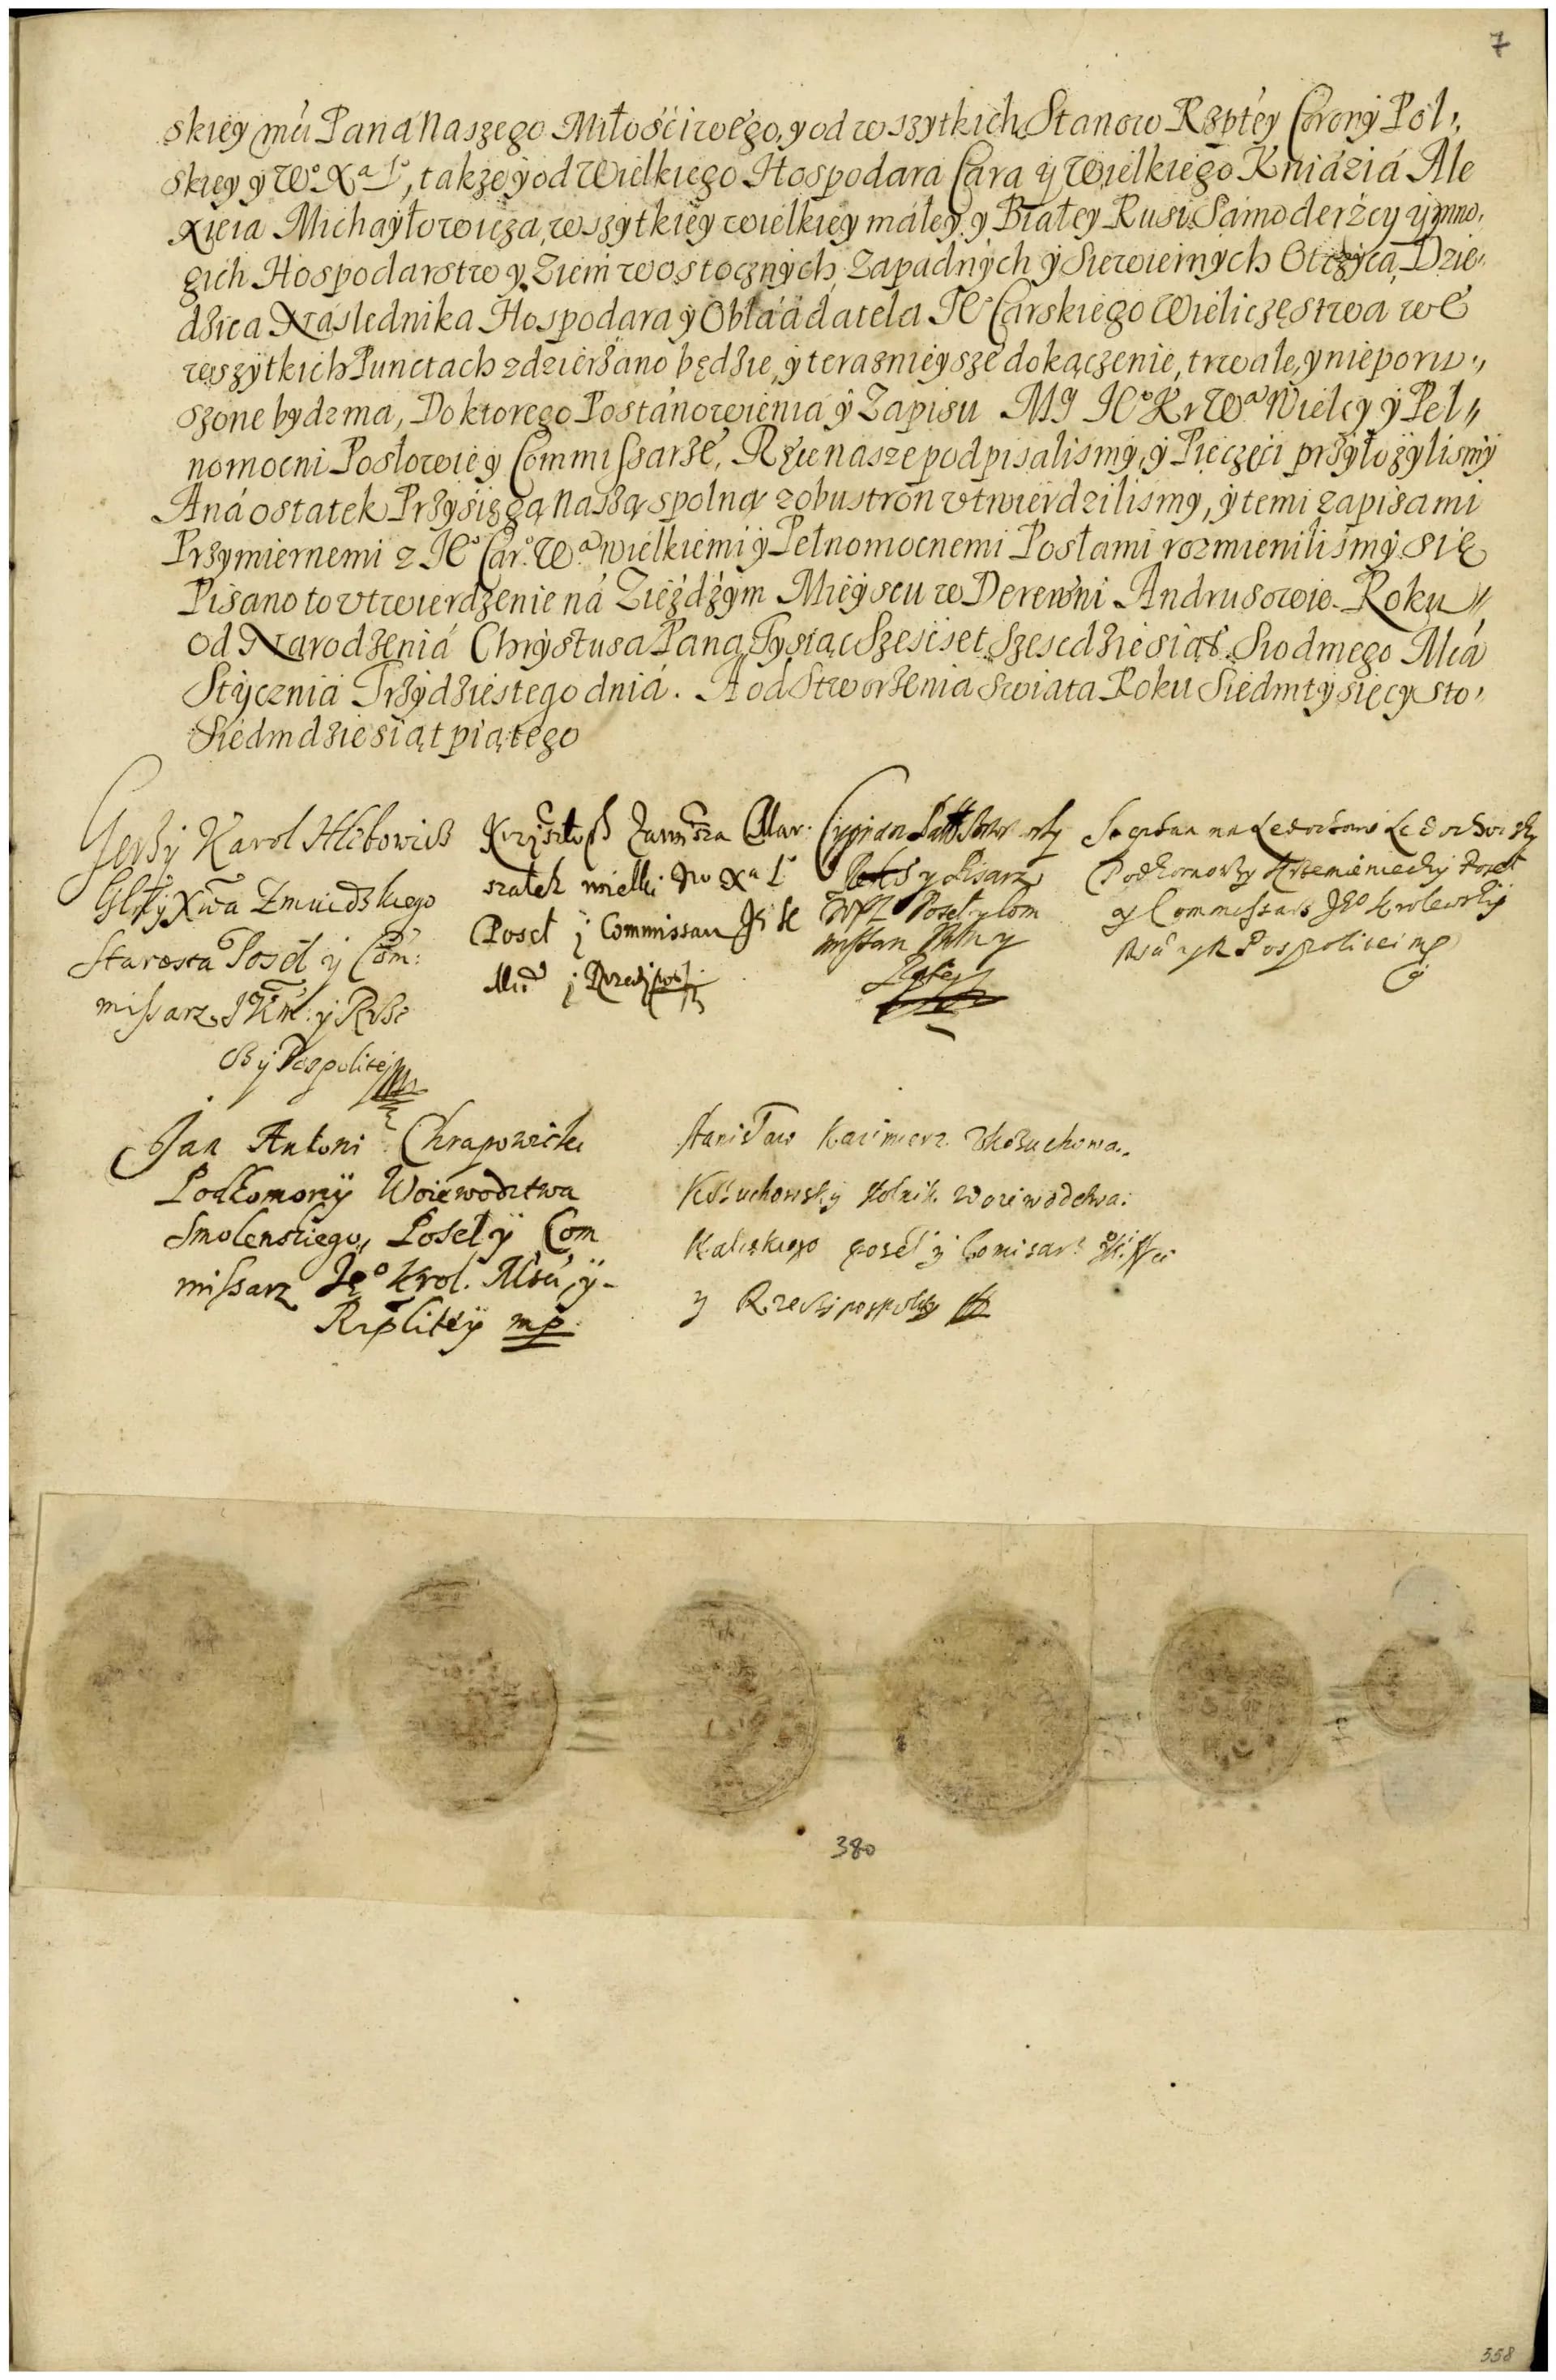 7
skiey mu Pana Naszego Miłościwego, y od wszytkich Stanow Rzptey Corony Pol,,
skiey y Wº Xª Lº, także y od Wielkiego Hospodara Cara y Wielkiego Kniázia Ale
xieia Michayłowicza, wszytkiey wielkiey máłey, y Białey Rusi Samoderźcy y mno,
gich Hospodarstw y Ziem wostocznych, Zapadnych y Siewiernych Otczyca, Dzie,,
dzica Naslednika Hospodara y Obładatela Jº Carskiego Wieliczęstwa we
wszytkich Punctach zdzierżano będzie, y teraznieysze dokączenie, trwałe, y nieporu,,
szone bydz ma, Do ktorego Postánowienia y Zapisu My Jº Kr Wª Wielcy y Peł,,
nomocni Posłowie y Commissarze, Ręce nasze podpisalismy, y Pieczęci przyłożylismy
A ná ostatek Przysięgą Naszą spolną z obu stron utwierdzilismy, y temi zapisami
Przymiernemi z Jº Carº Wª wielkiemi y Pełnomocnemi Posłami rozmienilismy się
Pisano to utwierdzenie ná Zieźdźym Mieyscu w Derewni Andrusowie. Roku,,
od Narodzeniá Chrystusa Pana Tysiąc Szescset Szescdziesiąt Siodmego Mcá
Stycznia Trzydziestego dniá. A od Stworzenia Swiata Roku Siedmtysięcy sto,
Siedmdziesiąt piątego
Jerzy Karol Hlebowicz
Glny Xtwa Zmuidzkiego
Starosta Poseł y Com:
missarz JKM. y Rze
czy Pospolitej
Krzysztoph Zawisza Mar.
szałek wielki Wº Xª Lº
Poseł j Commissarz
j Rzeczjposp.
Cyprian
y Pisarz
Poseł y Com
missarz
na Ledochowie Ledochowsky
Podkomorzy Krzemieniecky Poseł
y Commissarz Jeº Krolewskiy
y R Pospolitei mp
Jan Antoni Chrapowicki
Podkomorzÿ Woiewodztwa
Smolenskiego, Poseł ÿ Com
missarz Jeº Krol. Mści ÿ-
Rzplitéÿ mp.
Stanisław Kazimierz
Kożuchowsky stolnik Woiewodstwa
Kaliskiego poseł y Comisarz
y Rzeczipospolity
380
358